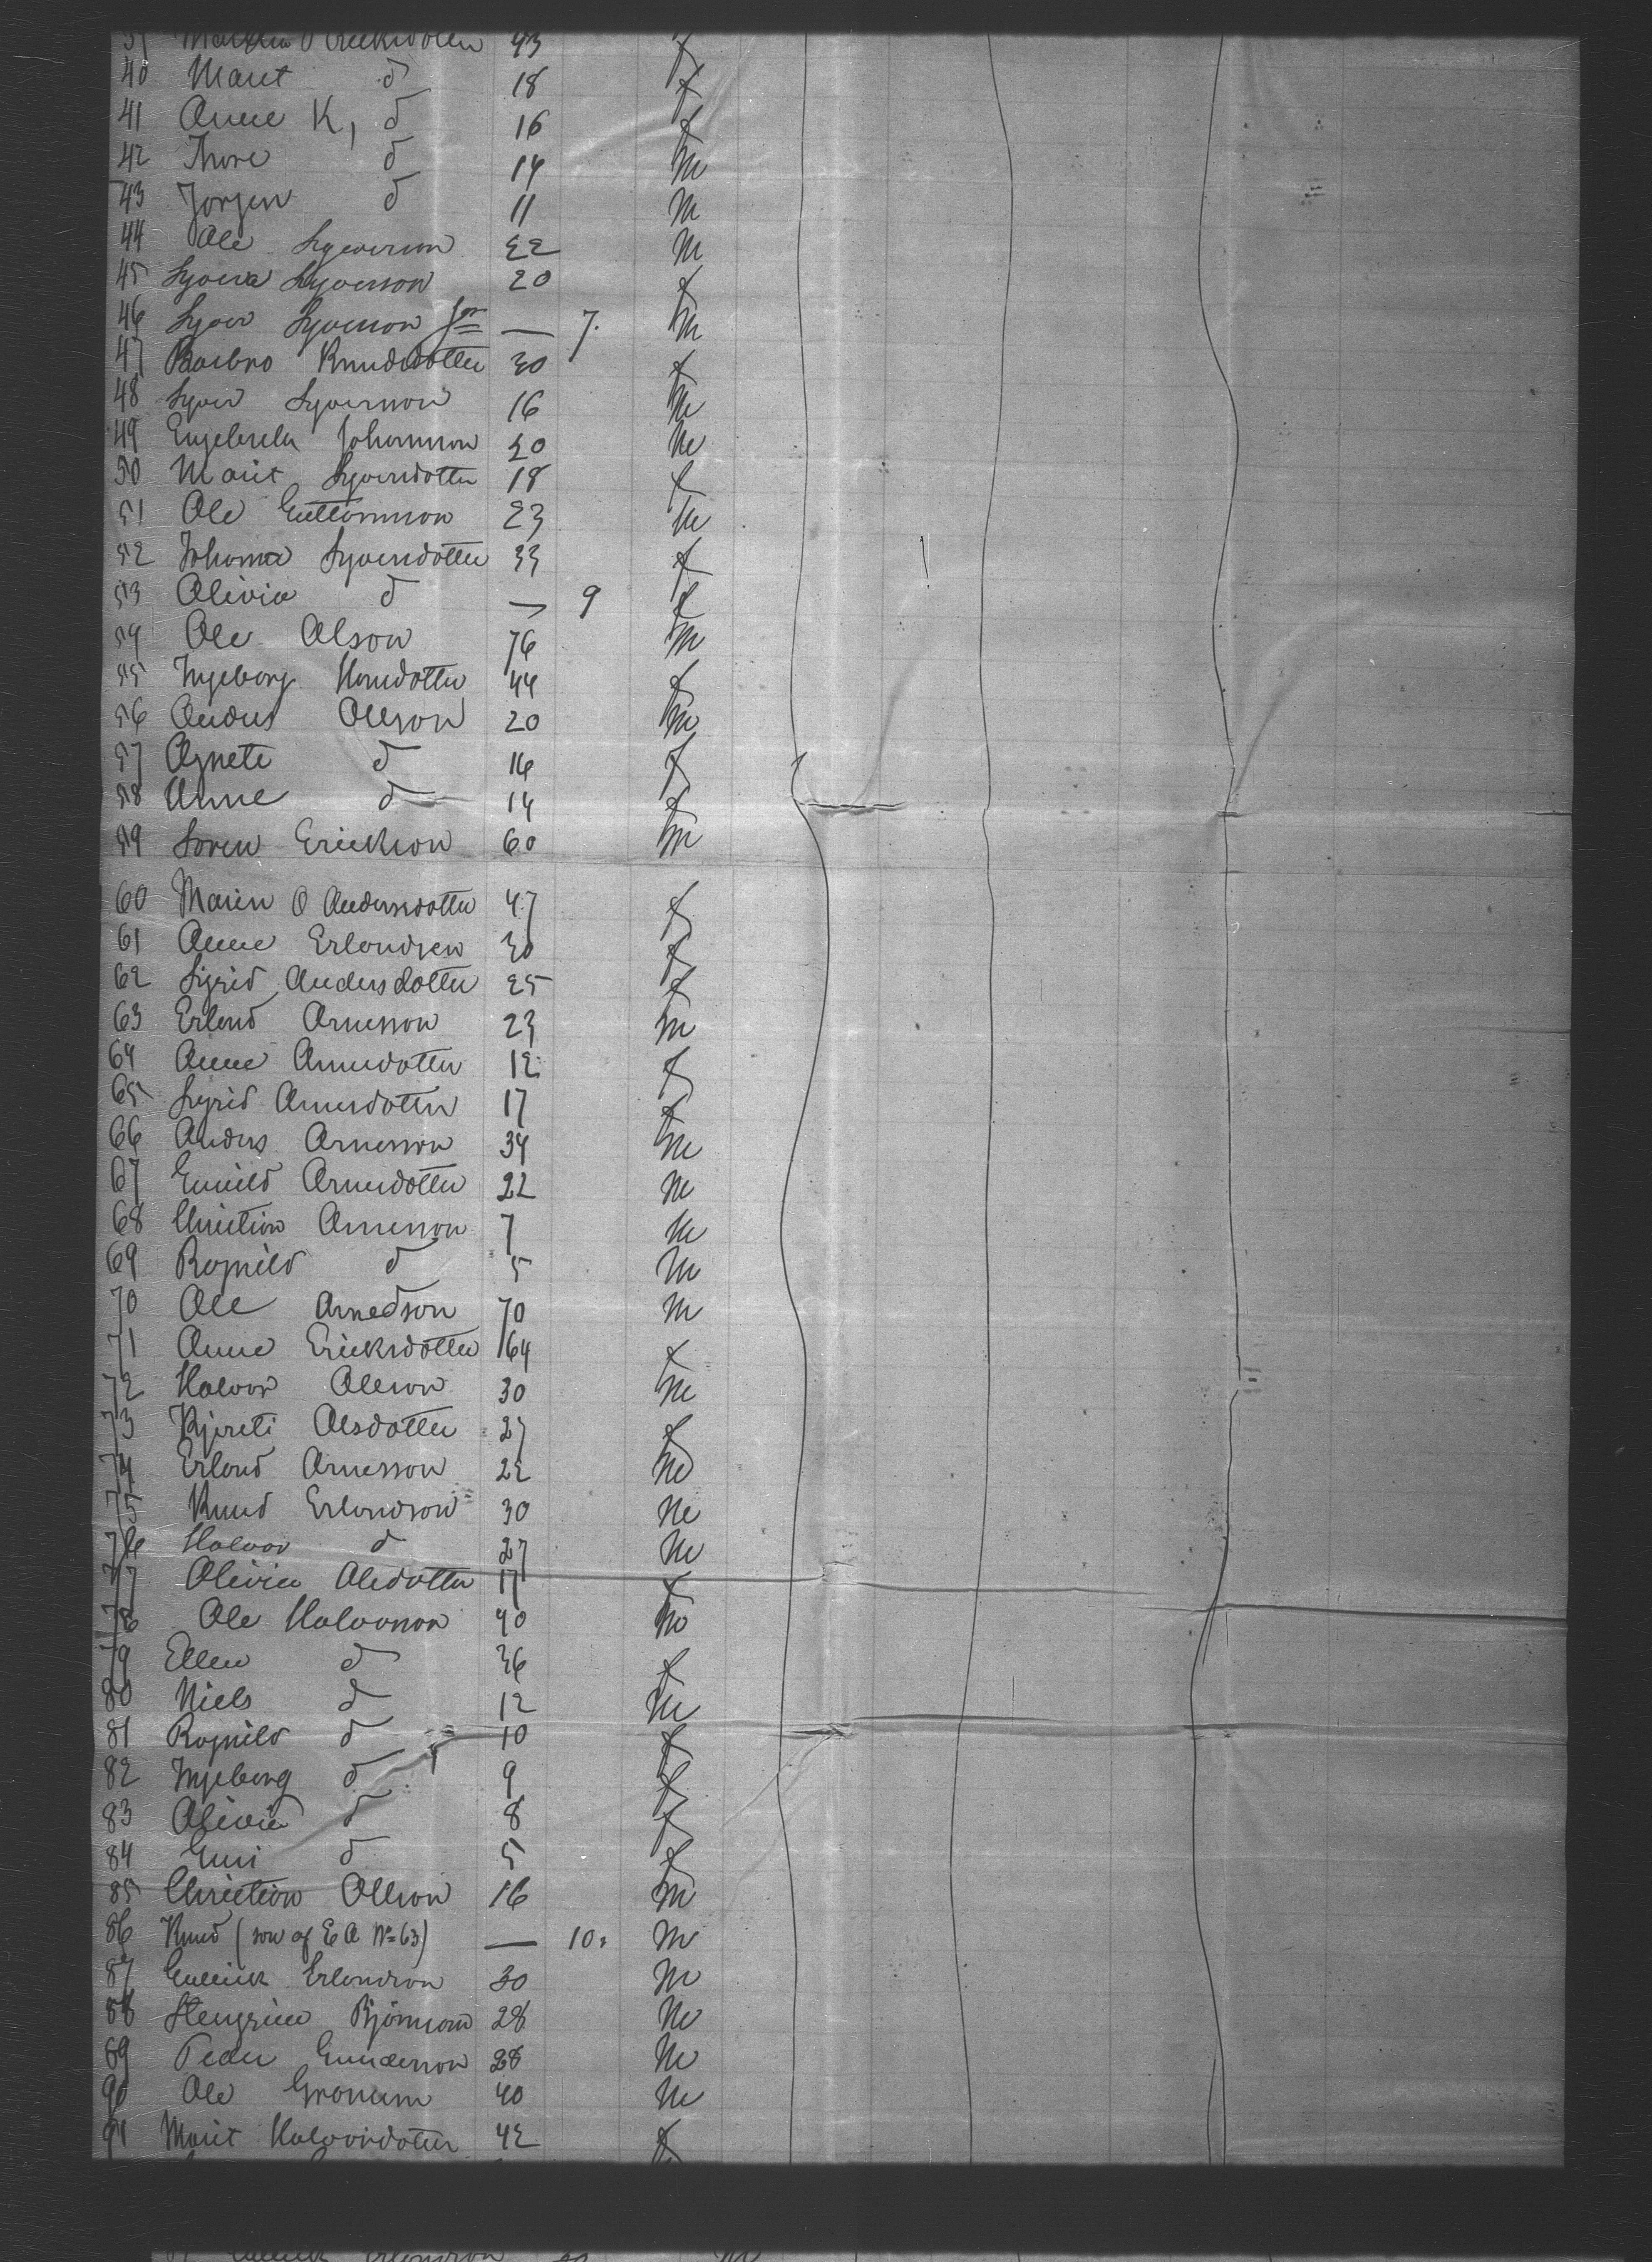 39 Ericksdotter 43 f
40 Marit d 18 f
41 Anne K, d 16 f
42 Thore d 14 m
43 Jorgen d 11 m
44 Ole Syverson 22 m
45 Syvera Syverson 20 f
46 Syver Syverson Jr — 7. m
47 Barbro Knudsdotter 30 f
48 Syver Syverson 16 m
49 Johannson 20 m
50 Marit Syversdotter 18 f
51 Ole Guttormson 23 m
52 Johanna Syversdotter 33 f
53 Olivia d — 9 f
54 Ole Olson 76 m
55 Ingeborg Hansdotter 44 f
56 Andus Olson 20 m
57 Agnete d 16 f
58 Anne d 14 f
59 Soren Erickson 60 m
60 Maren O Andersdotter 47 f
61 Anne Erlandsen 30 f
62 Sigrid Andersdotter 25 f
63 Erland Arneson 23 m
64 Anne Arnesdotter 12 f
65 Sigrid Arnesdotter 17 f
66 Anders Arneson 34 m
67 Arnesdotter 22 m
68 Christian Arneson 7 m
69 Ragnild d 5 m
70 Ole Arnedson 70 m
71 Anne Ericksdotter 64 f
72 Halvor Oleson 30 m
73 Kjersti Olsdotter 27 f
74 Erland Arnesson 22 m
75 Knud Erlandson 30 m
76 Halvor d 27 m
77 Olivia Olsdotter 17 f
78 Ole Halvorson 40 m
79 Ellen d 36 f
80 Niels d 12 m
81 Ragnild d 10 f
82 Ingeborg d 9 f
83 Olivia d 8 f
84 Guri d 5 f
85 Christian Olson 16 m
86 Knud (son of E A No 63) — 10. m
87 Gullick Erlandson 30 m
88 Stengrim Bjornson 28 m
89 Peder Gunderson 28 m
90 Ole Gronum 40 m
91 Marit Halvorsdotter 42 f
Erlandson m